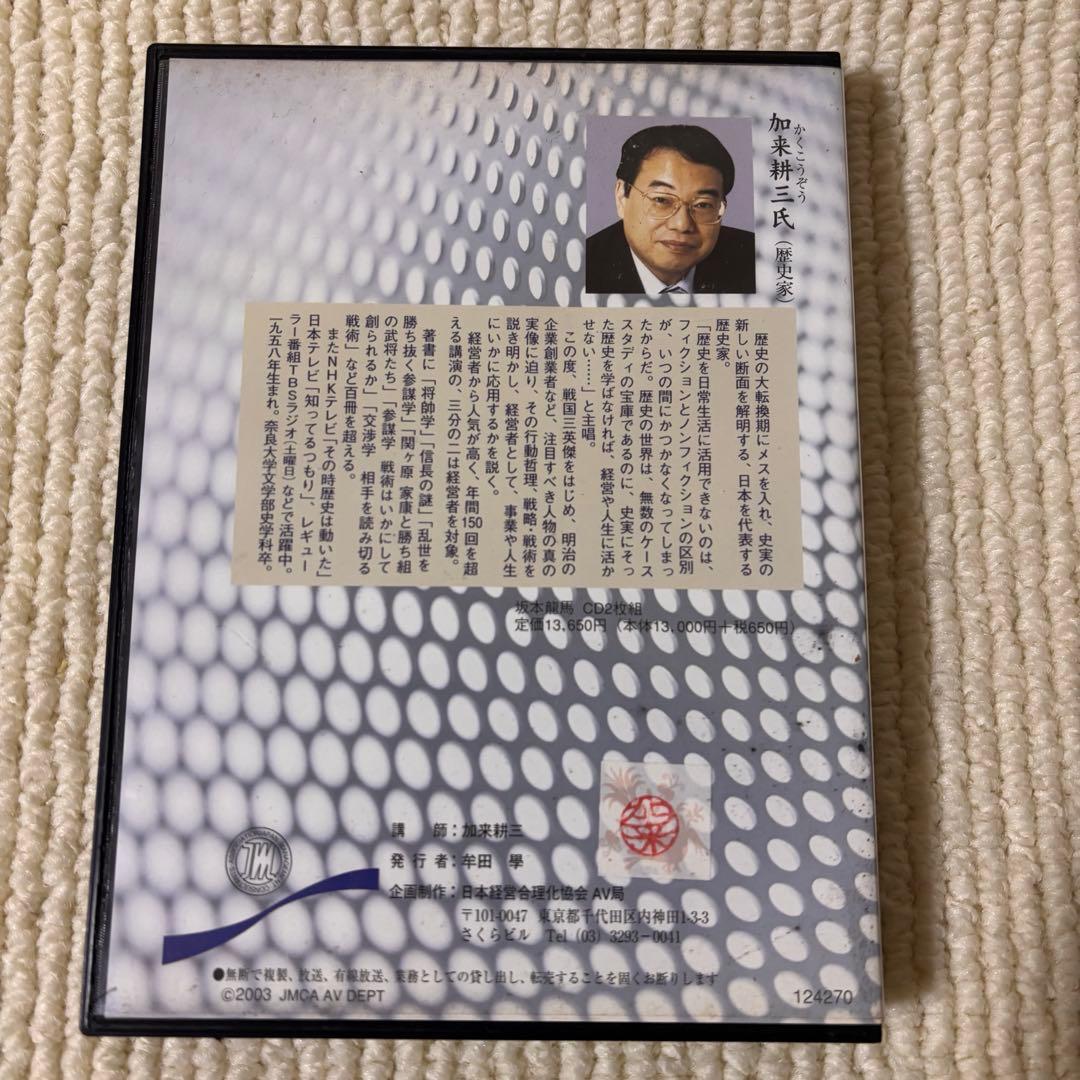 かくこうぞう
加来耕三氏（歴史家）
歴史の大転換期にメスを入れ、史実の
新しい断面を解明する、日本を代表する
歴史家。
「歴史を日常生活に活用できないのは、
フィクションとノンフィクションの区別
が、いつの間にかつかなくなってしまっ
たからだ。歴史の世界は、無数のケース
スタディの宝庫であるのに、史実にそっ
た歴史を学ばなければ、経営や人生に活か
せない……」と主唱。
この度、戦国三英傑をはじめ、明治の
企業創業者など、注目すべき人物の真の
実像に迫り、その行動哲理、戦略・戦術を
説き明かし、経営者として、事業や人生
にいかに応用するかを説く。
経営者から人気が高く、年間150回を超
える講演の、三分の二は経営者を対象。
著書に「将帥学」「信長の謎」「乱世を
勝ち抜く参謀学」「関ヶ原 家康と勝ち組
の武将たち」「参謀学 戦術はいかにして
創られるか」「交渉学 相手を読み切る
戦術」など百冊を超える。
またNHKテレビ「その時歴史は動いた」
日本テレビ「知ってるつもり」、レギュー
ラー番組TBSラジオ（土曜日）などで活躍中。
一九五八年生まれ。奈良大学文学部史学科卒。
坂本龍馬 CD2枚組
定価13,650円（本体13,000円＋税650円）
講　師：加来耕三
発行者：牟田 學
企画制作：日本経営合理化協会 AV局
〒101-0047 東京都千代田区内神田1-3-3
さくらビル Tel（03）3293－0041
●無断で複製、放送、有線放送、業務としての貸し出し、転売することを固くお断りします
©2003 JMCA AV DEPT
124270